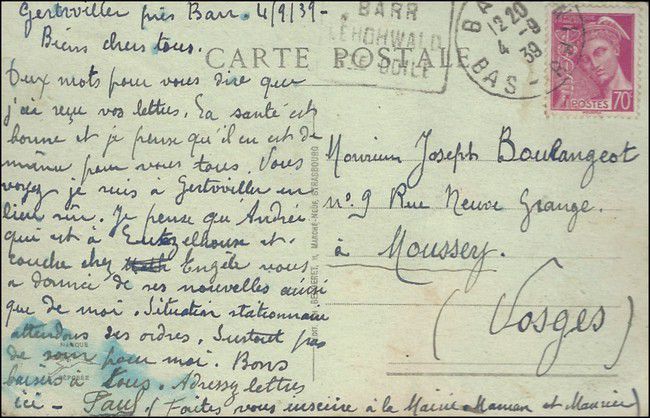 Gertwiller près Barr. 4/9/39-
Biens chers tous.
Deux mots pour vous dire que
j'ai reçu vos lettres. La santé est
bonne et je pense qu'il en est de
même pour vous tous. Vous
voyez je suis à Gertwiller en
lieu sûr. Je pense qu'André
qui est à et
couche chez Engèle vous
a donné de ses nouvelles ainsi
que de moi. Situation stationnaire
attendons des ordres. Surtout pas
de souci pour moi. Bons
baisers à tous. Adressez lettres
ici - Paul (Faites vous inscrire à la Mairie Maman et Maurice)
CARTE POSTALE
BARR
LEHOHWALD
STE ODILE
BARR
12 20
4 -9
39
BAS-RHIN
POSTES 70c
Monsieur Joseph Boulangeot
n° 9 Rue Neuve Grange.
à Moussey.
(Vosges)
MARQUE
DÉPOSÉE
11, MARCHÉ-NEUF, STRASBOURG